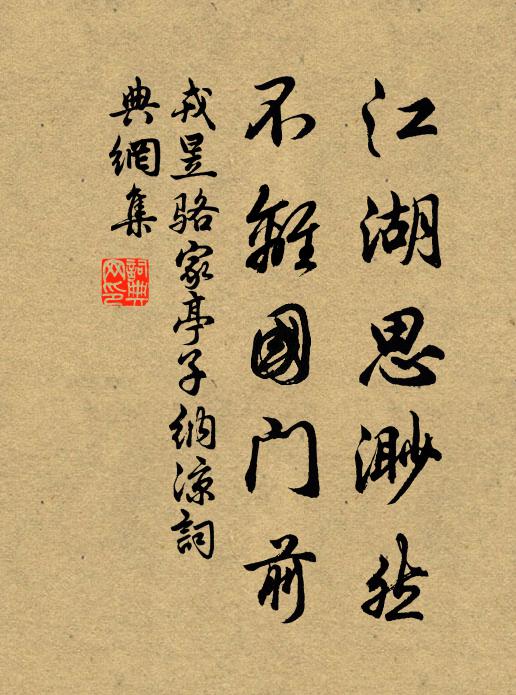 江湖思渺然
不離國門前
戎昱骆家亭子纳凉詞
典網集
詞典
网印